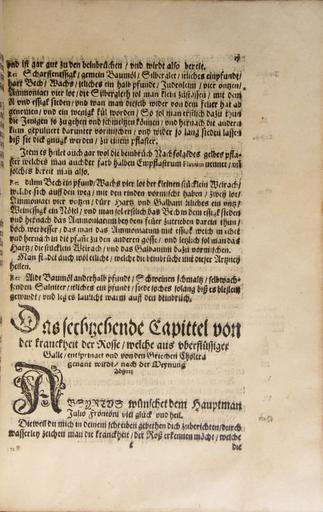 vnd ist gar gut zu den beinbrüchen / vnd wirdt also bereit.
Rec: Scharffenessigk / gemein Baumöl / Silberglet / itliches ein pfundt /
hart Bech / Wachs / itliches ein halb pfundt / Judenleim / vier ontzen /
Ammoniaci vier lot / die Silbergleth sol man klein zustossen / mit dem
öl vnd essigk sieden / vnd wan man dieselb wider von dem feuer hat ab
genomen / vnd ein wenigk kül worden / So sol man erstlich dazu thun
die Jenigen so zugehen vnd schmeltzen können / vnd hernach die andern
klein gepuluert darunter vormischen / vnd wider so lang sieden lassen
biß sie dick gnugk werden / zu einem pflaster.
Item es heilet auch gar wol die beinbrüch Nachfolgedes gelbes pfla-
ster welches man auch der farb halben Empflastrum nennet / vñ
solches bereit man also.
Rec: dürre Bech ein pfundt / Wachs vier lot der kleinen stücklein Weirach /
welche sich auß den vnd mit den enden vormischt haben / zwey lot /
Ammoniaci vier vntzen / dürr Hartz vnd Galbani itliches ein vntz /
Weinessigk ein Nösel / vnd man sol erstlich das Bech in dem essigk sieden
vnd hernach das Ammoniacum bey dem feuer zutreiben darein thun /
doch were besser / das man das Ammoniacum mit essigk weich machet
vnd hernach in die pfann zu den anderen gösse / vnd letzlich sol man das
Hartz / die stücklein Weirach / vnd das Galbanum dazu vormischen.
Man findet auch wol etliche / welche die beinbrüche mit dieser Artzney
heilen.
Rec: Alde Baumöl anderhalb pfundt / Schweinen schmaltz / felbwach-
senden Salniter / itliches ein pfundt / siede solches solang biß es bleslein
gewindt / vnd leg es laulicht warm auff den beinbruch.
Das sechzehende Capittel von
der kranckheit der Rosse / welche aus vberflüssiger
Galle / entspringet vnd von den Griechen Cholera
genant wirdt / nach der Meynung
Absyrti
ABSYRTVS wünschet dem Hauptman
Julio Frontoni viel glück vnd heil.
Dieweil du mich in deinem schreiben gebethen dich zuberichten / durch
wasserley zeichen man die kranckheit / der Roß erkennen möcht / welche
E
die